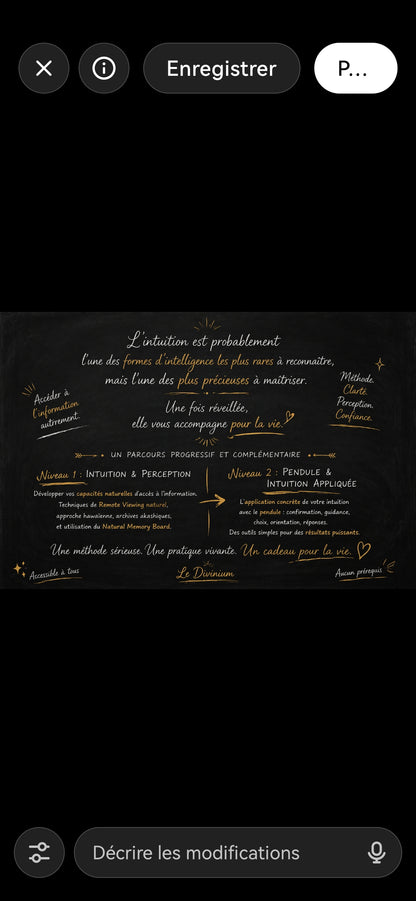 Enregistrer
P...
L'intuition est probablement
l'une des formes d'intelligence les plus rares à reconnaître,
mais l'une des plus précieuses à maîtriser.
Accéder à
l'information
autrement.
Méthode.
Clarté.
Perception.
Confiance.
Une fois réveillée,
elle vous accompagne pour la vie.
UN PARCOURS PROGRESSIF ET COMPLÉMENTAIRE
Niveau 1 : INTUITION & PERCEPTION
Développer vos capacités naturelles d'accès à l'information.
Techniques de Remote Viewing naturel,
approche hawaïenne, archives akashiques,
et utilisation du Natural Memory Board.
Niveau 2 : PENDULE &
INTUITION APPLIQUÉE
L'application concrète de votre intuition
avec le pendule : confirmation, guidance,
choix, orientation, réponses.
Des outils simples pour des résultats puissants.
Une méthode sérieuse. Une pratique vivante. Un cadeau pour la vie.
Accessible à tous
Le Divinium
Aucun prérequis
Décrire les modifications